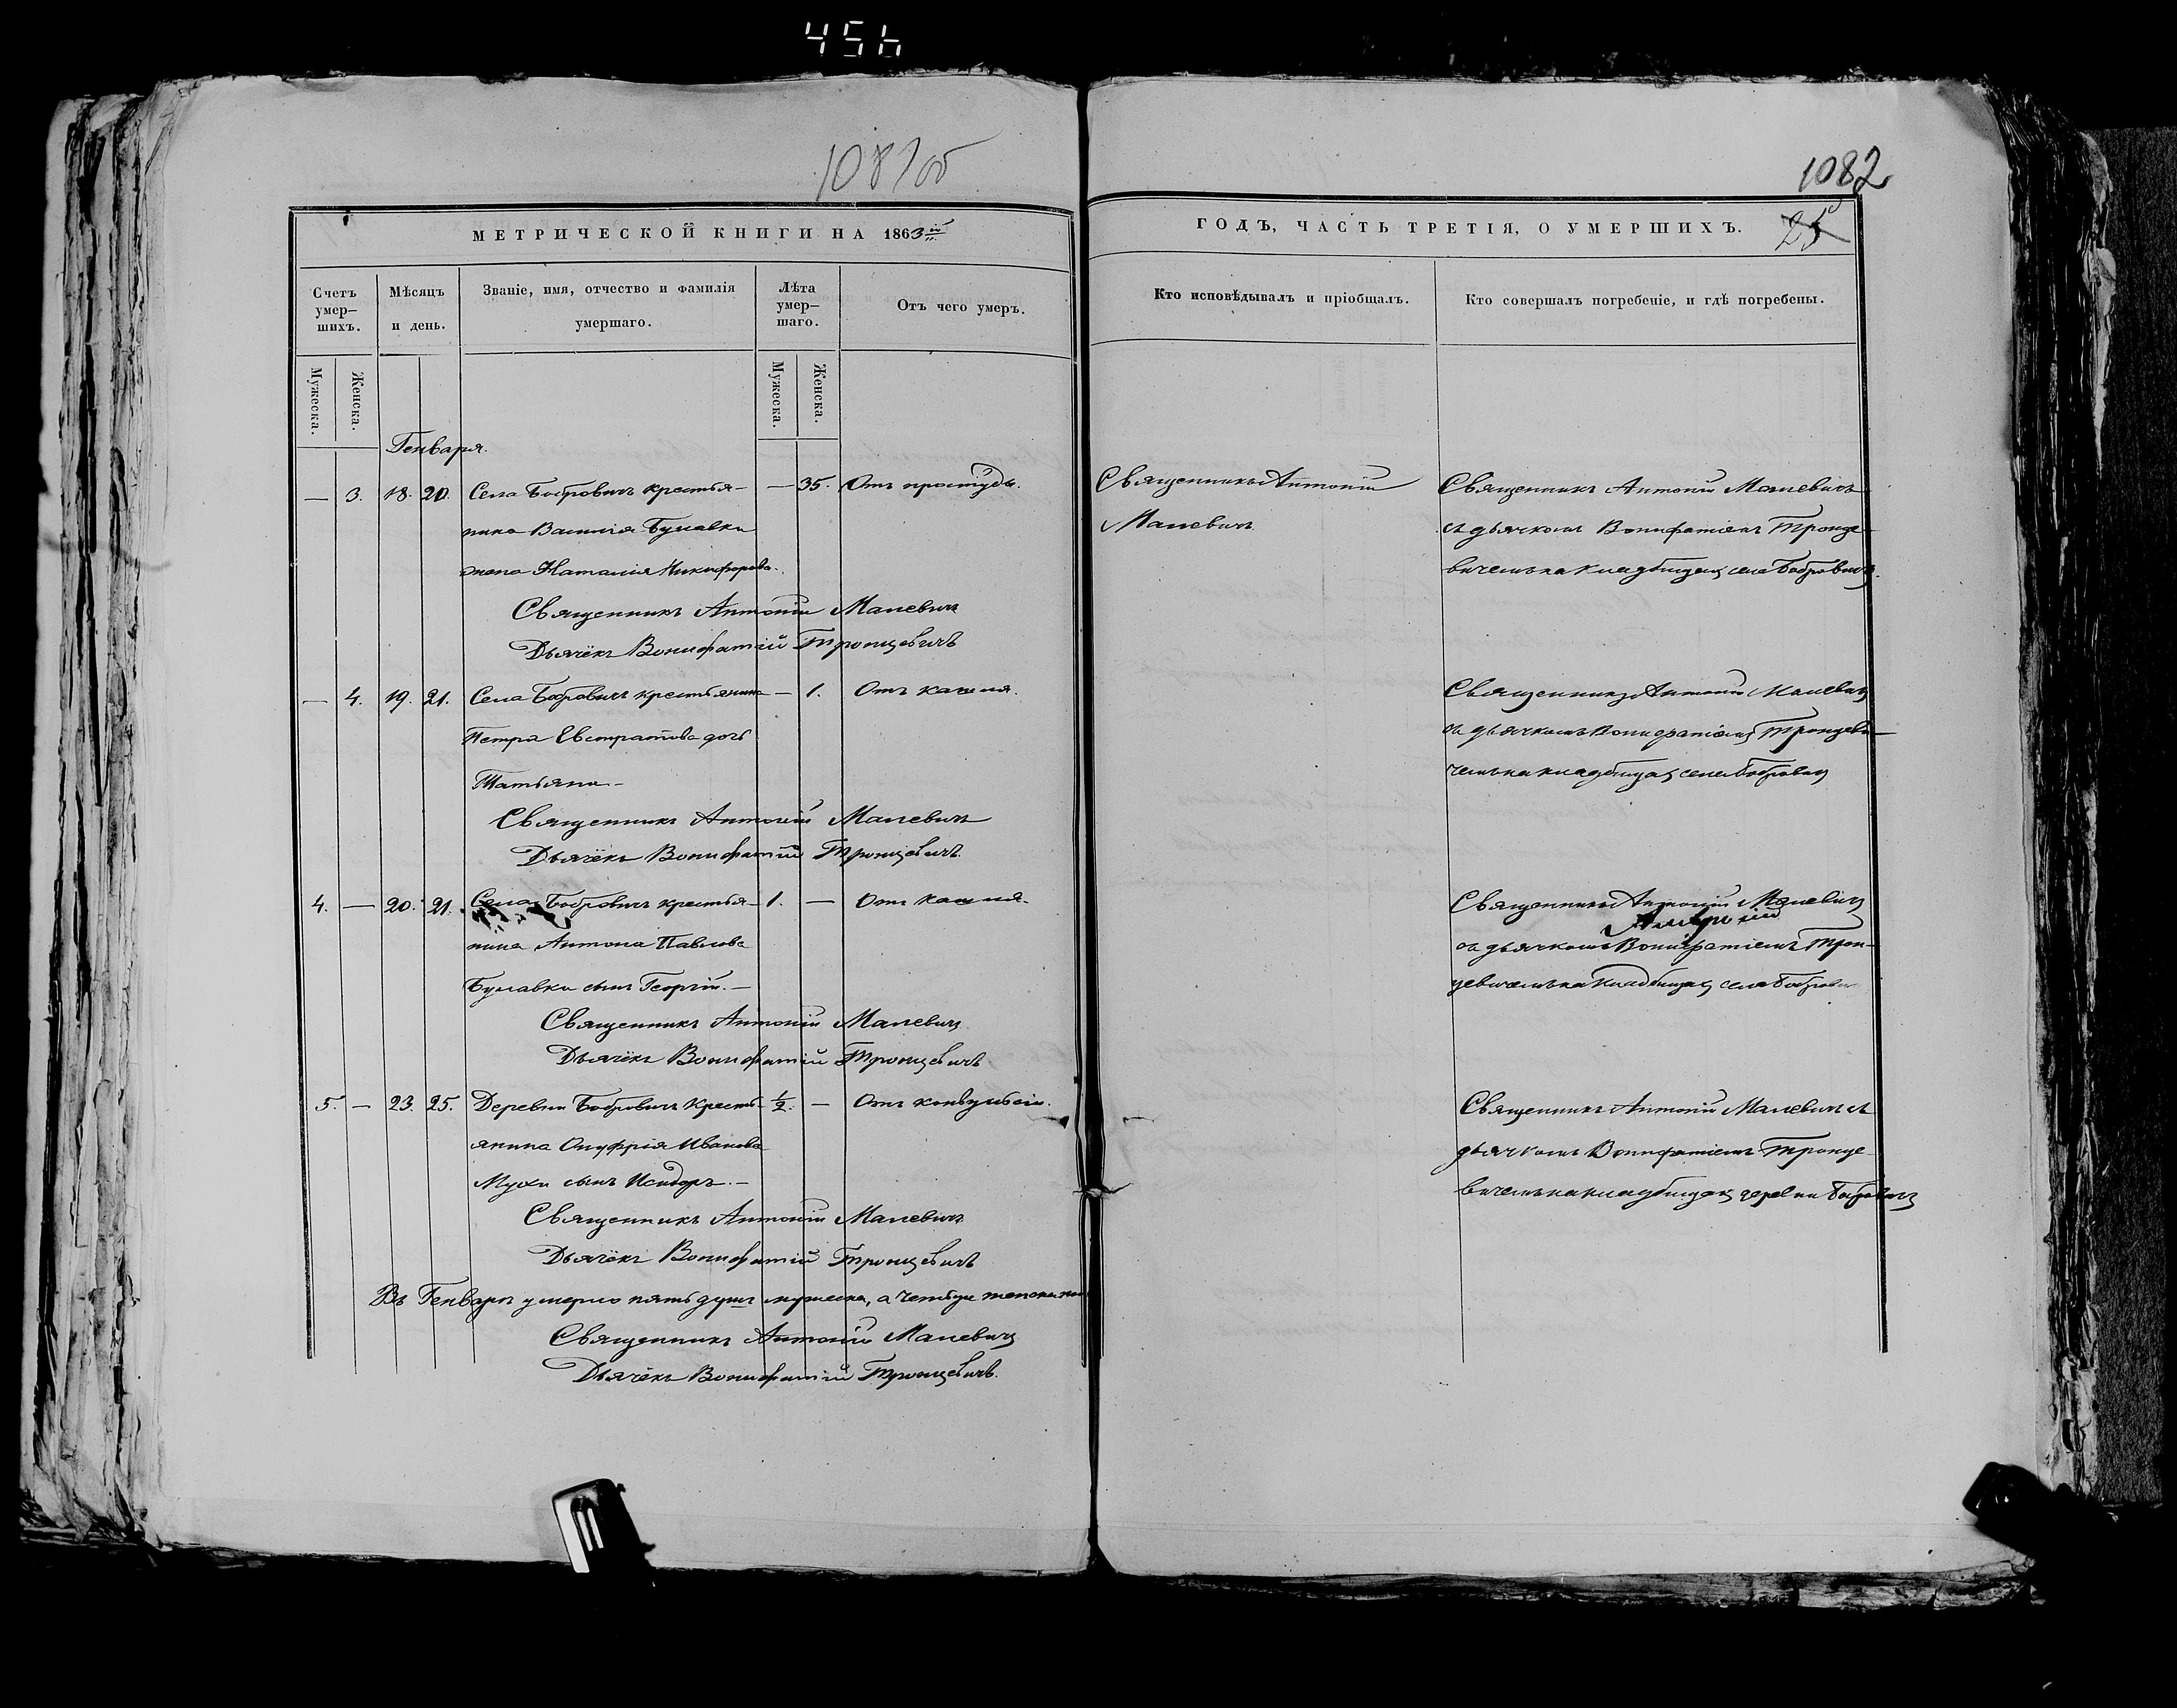 456
1081об
1082
МЕТРИЧЕСКОЙ КНИГИ НА 1863й
ГОДЪ, ЧАСТЬ ТРЕТІЯ, О УМЕРШИХЪ.
25
Счетъ умер–шихъ.
Мѣсяцъ и день.
Званіе, имя, отчество и фамилія умершаго.
Лѣта умер–шаго.
Отъ чего умеръ.
Кто исповѣдывалъ и пріобщалъ.
Кто совершалъ погребеніе, и гдѣ погребены.
Мужеска.
Женска.
Мужеска.
Женска.
Генваря.
— 3. 18. 20. Села Бобровичъ крестья- — 35. Отъ простуды.
нина Василія Булавки
жена Наталія Никифорова.
Священникъ Антоній Малевичъ
Дьячёкъ Вонифатій Тронцевичъ
Священникъ Антоній
Малевичъ
Священникъ Антоній Малевичъ
съ дьячкомъ Вонифатіемъ Тронце-
вичемъ на кладбищѣ села Бобровичъ.
— 4. 19. 21. Села Бобровичъ крестьянина — 1. Отъ кашля.
Петра Евстратова дочь
Татьяна —
Священникъ Антоній Малевичъ
Дьячёкъ Вонифатій Тронцевичъ.
Священникъ Антоній Малевичъ
съ дьячкомъ Вонифатіемъ Тронцеви-
чемъ на кладбищѣ села Бобровичъ
4. — 20. 21. Села Бобровичъ крестья- 1. — Отъ кашля.
нина Антона Павлова
Булавки сынъ Георгій. —
Священникъ Антоній Малевичъ
Дьячёкъ Вонифатій Тронцевичъ
Священникъ Антоній Малевичъ
съ дьячкомъ Вонифатіемъ Трон-
цевичемъ на кладбищѣ села Бобровичъ
5. — 23. 25. Деревни Бобровичъ Кресть- ½. — Отъ конвульсіи.
янина Онуфрія Иванова
Мухи сынъ Исидоръ. —
Священникъ Антоній Малевичъ
Дьячёкъ Вонифатій Тронцевичъ
Священникъ Антоній Малевичъ съ
дьячкомъ Вонифатіемъ Тронце-
вичемъ на кладбищѣ деревни Бобровичъ
Въ Генварѣ умерло пять душъ мужеска, а четыре женска
Священникъ Антоній Малевичъ
Дьячёкъ Вонифатій Тронцевичъ.